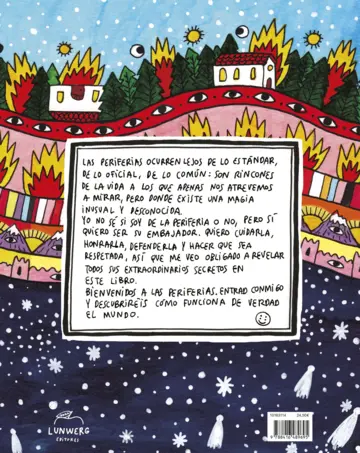 LAS PERIFERIAS OCURREN LEJOS DE LO ESTÁNDAR,
DE LO OFICIAL, DE LO COMÚN: SON RINCONES
DE LA VIDA A LOS QUE APENAS NOS ATREVEMOS
A MIRAR, PERO DONDE EXISTE UNA MAGIA
INUSUAL Y DESCONOCIDA.
YO NO SÉ SI SOY DE LA PERIFERIA O NO, PERO SÍ
QUIERO SER SU EMBAJADOR. QUIERO CUIDARLA,
HONRARLA, DEFENDERLA Y HACER QUE SEA
RESPETADA, ASÍ QUE ME VEO OBLIGADO A REVELAR
TODOS SUS EXTRAORDINARIOS SECRETOS EN
ESTE LIBRO.
BIENVENIDOS A LAS PERIFERIAS. ENTRAD CONMIGO
Y DESCUBRIRÉIS CÓMO FUNCIONA DE VERDAD
EL MUNDO.
LUNWERG
EDITORES